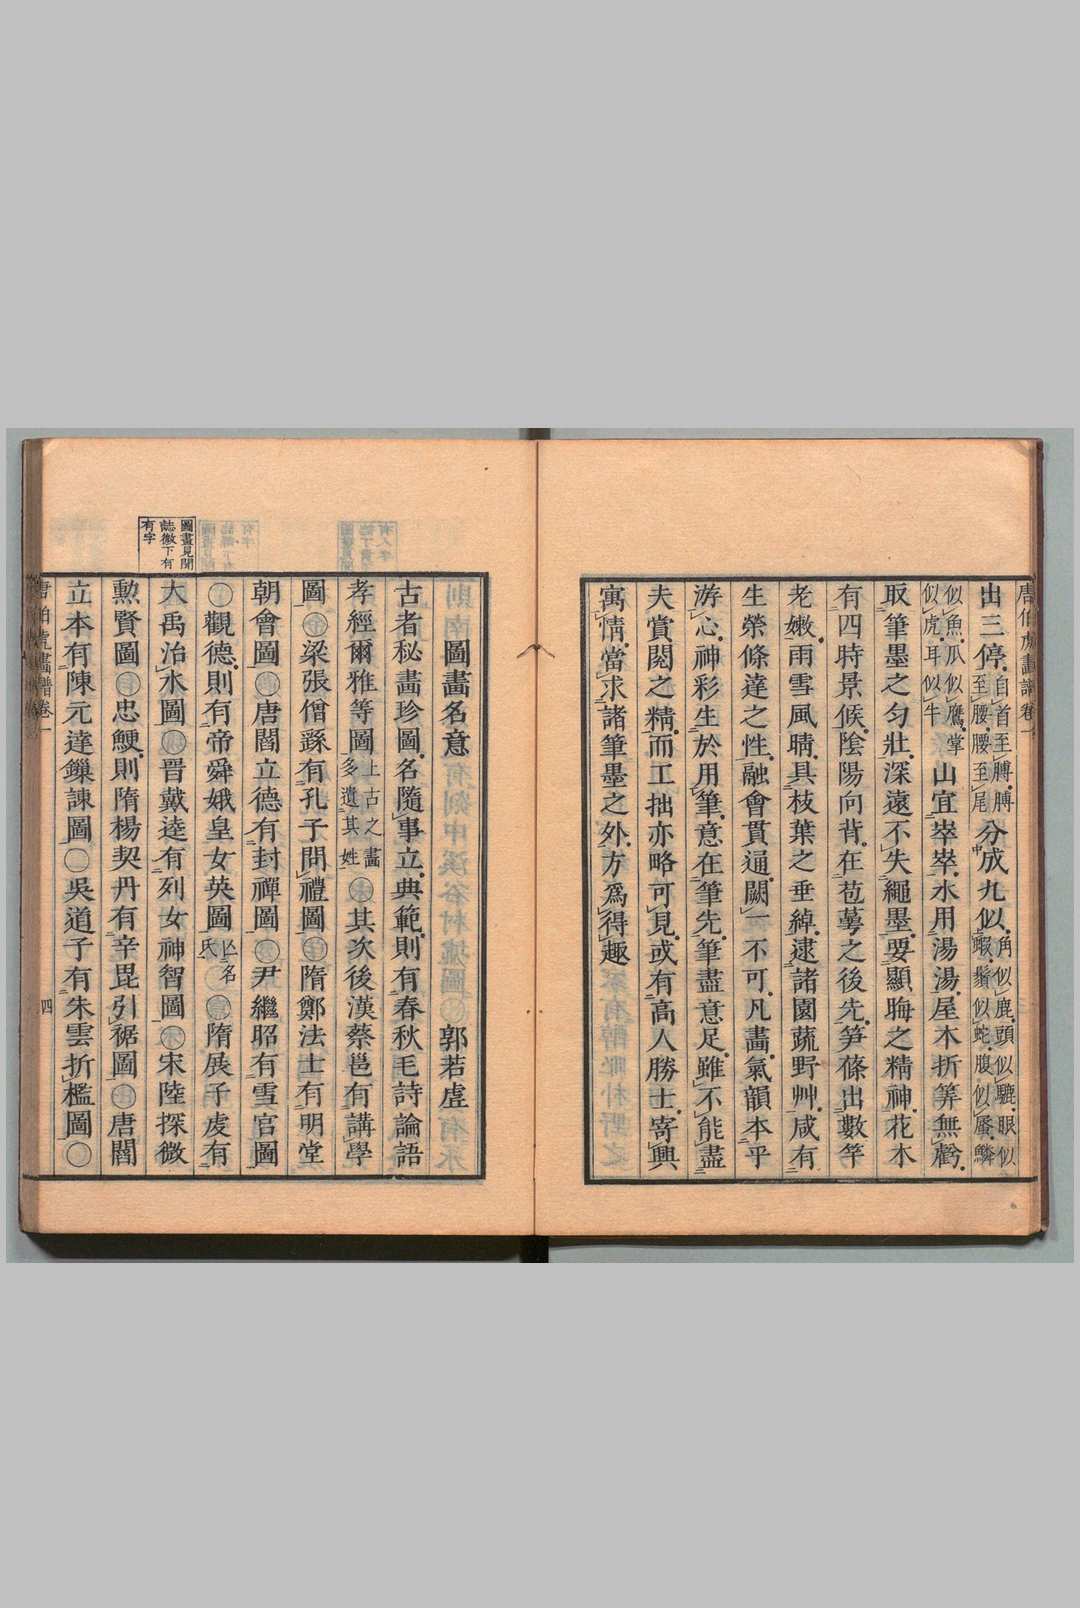 唐伯虎畫譜卷一
出三停自首至膊膊至腰腰至尾分成九似角似鹿頭似駞眼似蝦鬚似蛇腹似蜃鱗
似魚爪似鷹掌似虎耳似牛山宜崒崒水用湯湯屋木折筭無虧
取筆墨之匀壯深遠不失繩墨要顯晦之精神花木
有四時景候陰陽向背在苞萼之後先笋篠出數竿
老嫩雨雪風晴具枝葉之垂綽逮諸園蔬野艸咸有
生榮條達之性融會貫通闕一不可凡畫氣韻本乎
游心神彩生於用筆意在筆先筆盡意足雖不能盡
夫賞閱之精而工拙亦略可見或有高人勝士寄興
寓情當求諸筆墨之外方爲得趣
圖畫名意 郭若虛
古者秘畫珍圖名隨事立典範則有春秋毛詩論語
孝經爾雅等圖上古之畫多遺其姓其次後漢蔡邕有講學
圖梁張僧繇有孔子問禮圖隋鄭法士有明堂
朝會圖唐閻立德有封禪圖尹繼昭有雪宮圖
觀德則有帝舜娥皇女英圖亾名氏隋展子虔有
大禹治水圖晋戴逵有列女神智圖宋陸探微
勲賢圖忠鯁則隋楊契丹有辛毘引裾圖唐閻
立本有陳元達鏁諫圖吳道子有朱雲折檻圖
圖畫見聞
誌微下有
有字
唐伯虎畫譜卷一
四